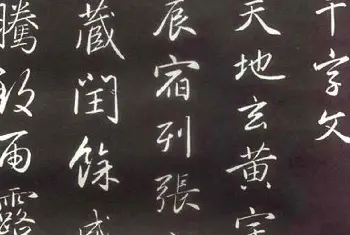 千字文
天地玄黃宇
辰宿列張
藏閏餘成
騰致雨露